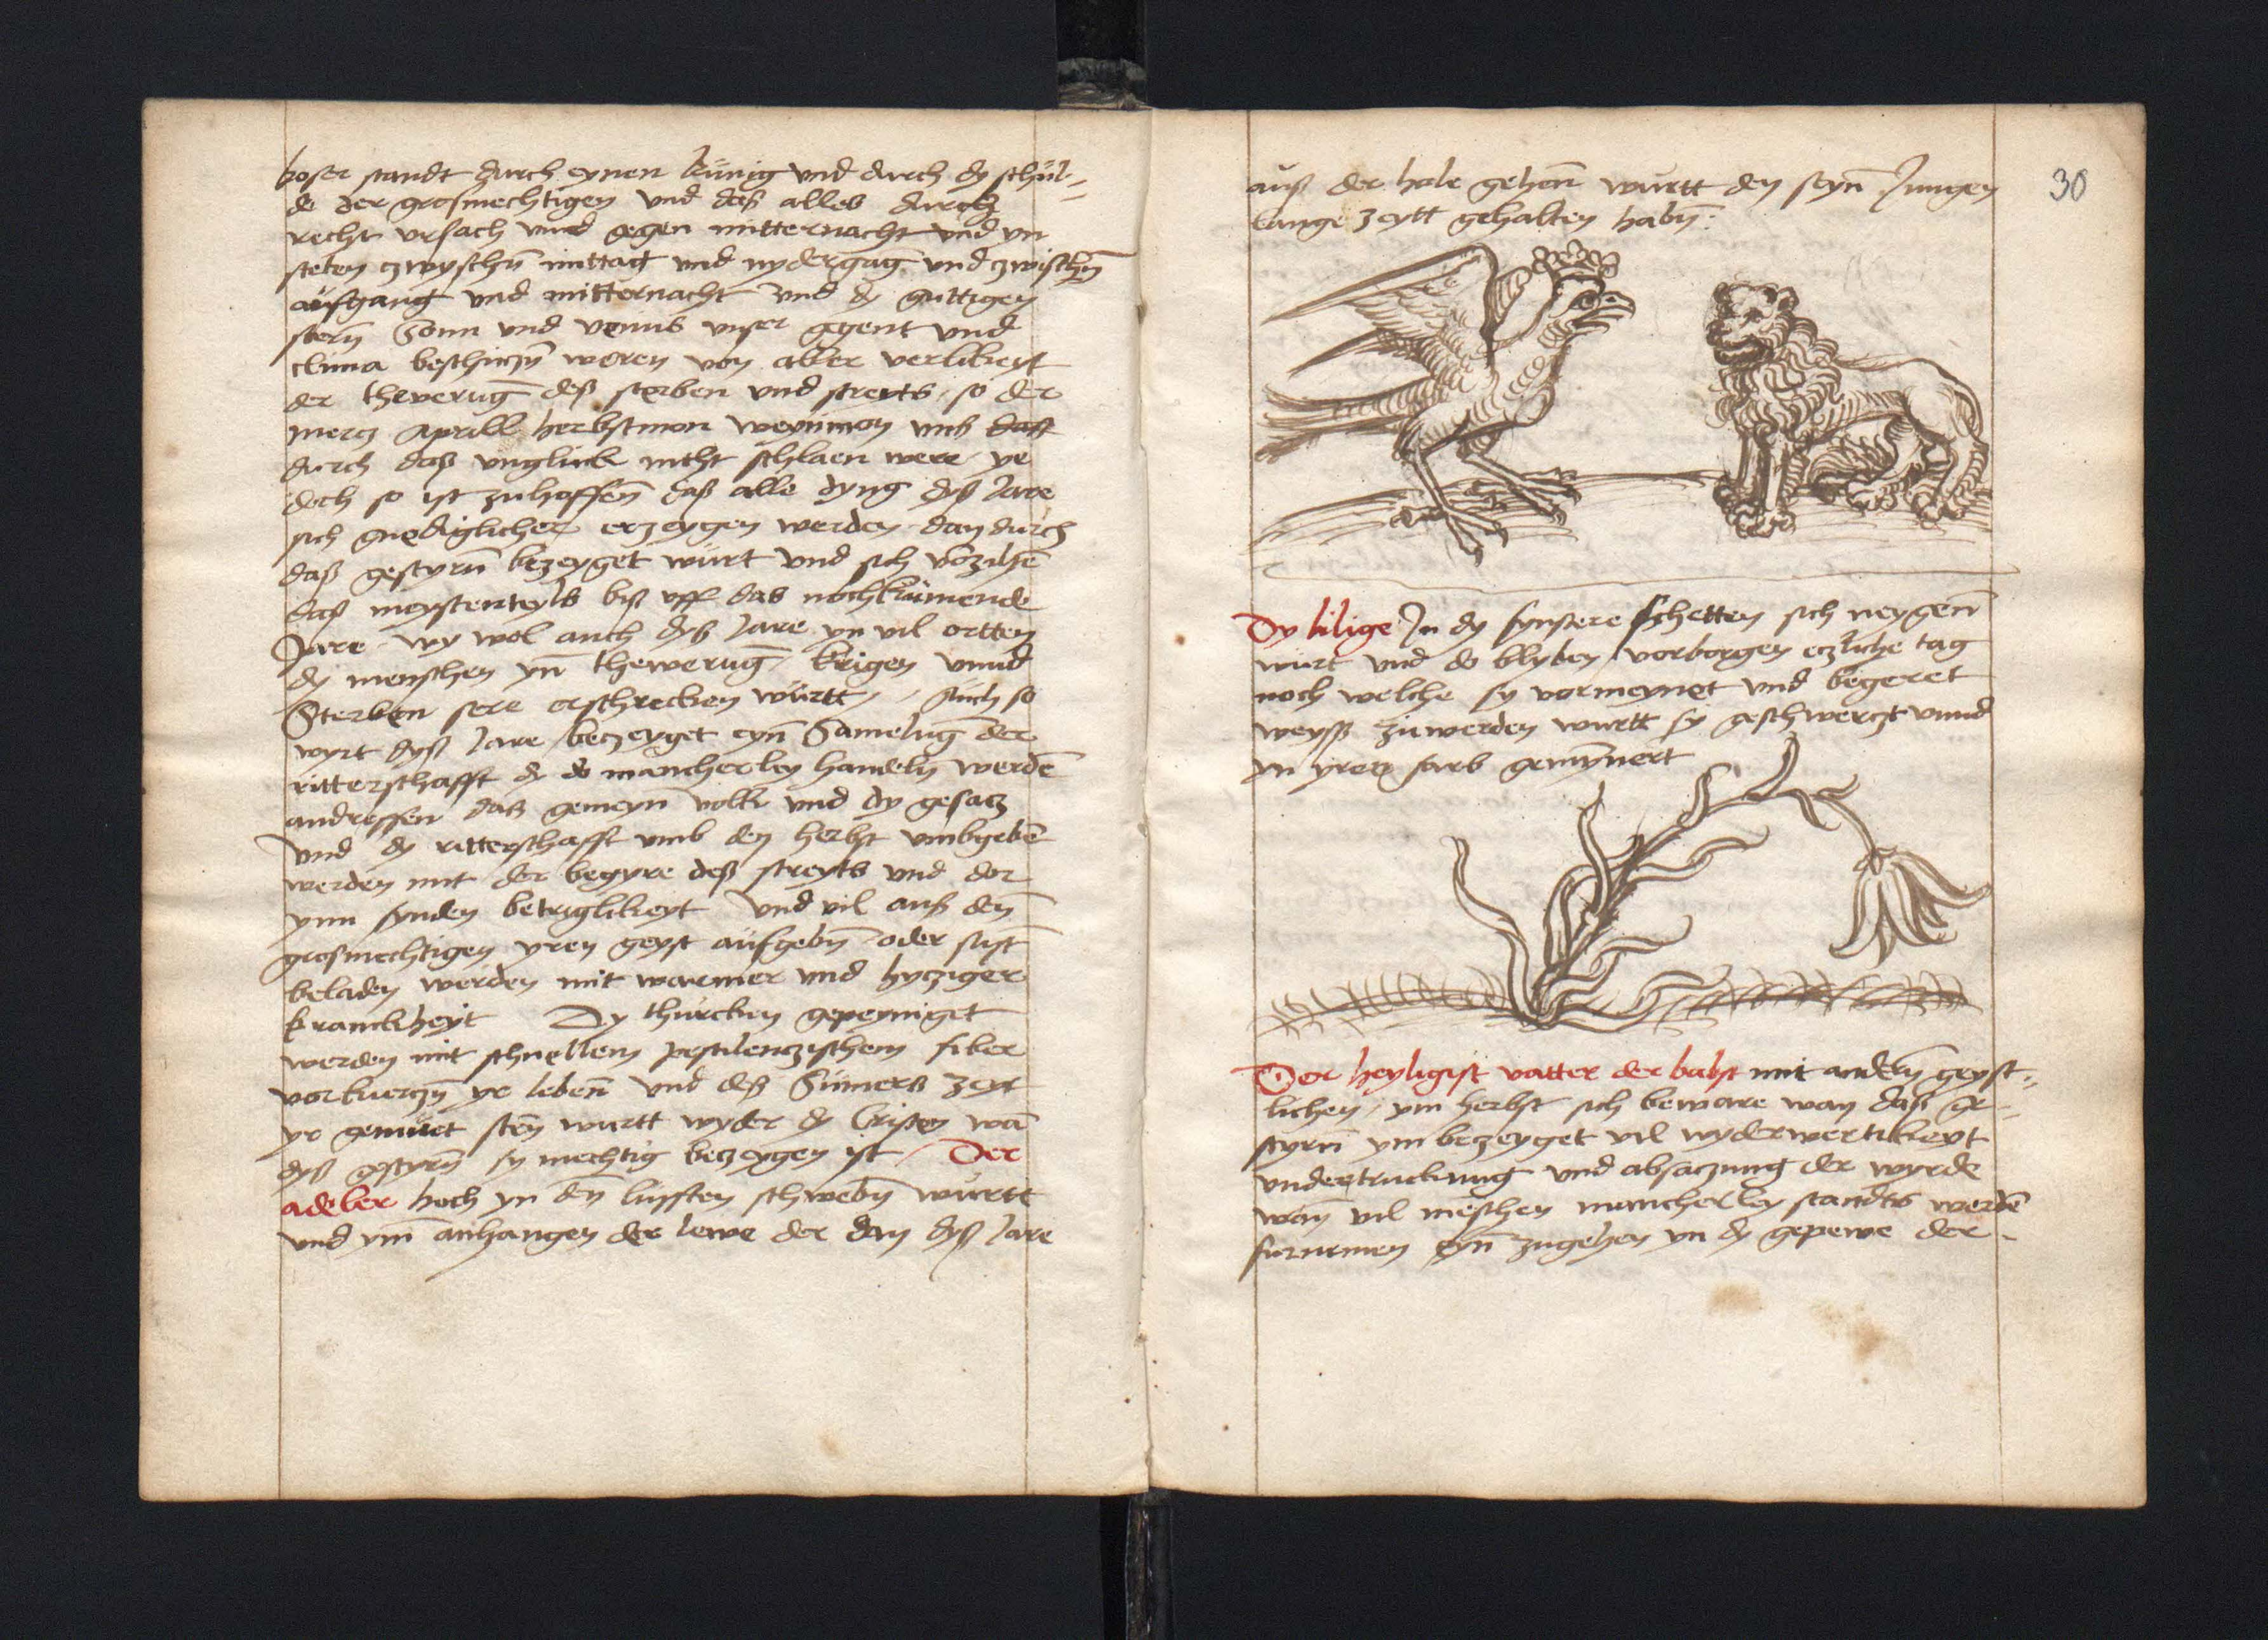 boser standt durch eynen künig vnd durch dy schul„
de der grosmechtigen vnd daß alles durch
recht vrsach vnnd gegen mitternacht vnd yn
steten zwyschn̄ mittag vnd nydergāg vnd zwischn̄
aufgang vnd mitternacht vnd dy guttigen
stern̄ Sonn vnd venus vnser gegent vnd
clima beschinen weren von aller verlikeyt
der thewerūg deß sterben vnd streyts so der
mercz Aprill herbstmon weynmon vnß dast
durch daß vngluck nicht schlaen were ye
doch so ist zuhoffen̄ daß alle dyng dyß Jare
sich gnediglicher erzeygen werden dan durch
daß gestyrn̄ bezeyget wurt vnd sich vorzihē
daß meystenteyls biß vff das nochkumende
Jare wy wol auch dyß Jare yn vil ortten
dy menschen yn̄ thewerūg krigen vnnd
Sterben sere erschrecken wurtt Auch so
wyrt dyß Jare beczeyget eyn̄ Samelūg der
ritterschafft dy do mancherley handeln werdē
andreffen daß gemeyn volk vnd dy gesacz
Vnd dy ritterschafft vmb den herbst vmbgebē
werden mit der begyre deß streyts vnd dor
ynn synden betriglikeyt Vnd vil auß den̄
grosmechtigen yren geyst aufgebn̄ oder sust
beladen werden mit warmer vnd hycziger
kranckheyt Dy thurcken gepeyniget
werden mit schnellem pestilenczischem fiber
vorkurczn̄ yr leben̄ vnd deß Sumers zeyt
yr gemuet sten̄ wurtt wyder dy Cristen wā
dyß gestyrn̄ sy mechtig beczeygen ist Der
adeler hoch yn den̄ lufften schwebn̄ wurtt
und ym̄ anhangen der lewe der dan dyß Jare
30
auß der hole gehen̄ wurtt den seyn̄ Jungen
lange zeytt gehalten habn̄:
Dy lilige Jn dy fynstere schetten sich neygen̄
wurt vnd do blyben vorborgen eczliche tag
noch welche sy vormeynet vnd begeret
weyß zu werden wurtt sy geschwerczt vnnd
yn yrer farb gemynnert
Der heyligist vatter der babst mit andern̄ geyst„
lichen ym herbst sich beware wan daß ge„
styrn̄ ym bezeyget vil wyderwertikeyt
vndertruckung vnd absaczung der wyrde
wan̄ vil mēschen mancherley standts werdē
furnemen eyn̄ zugehen yn dy gepewe der